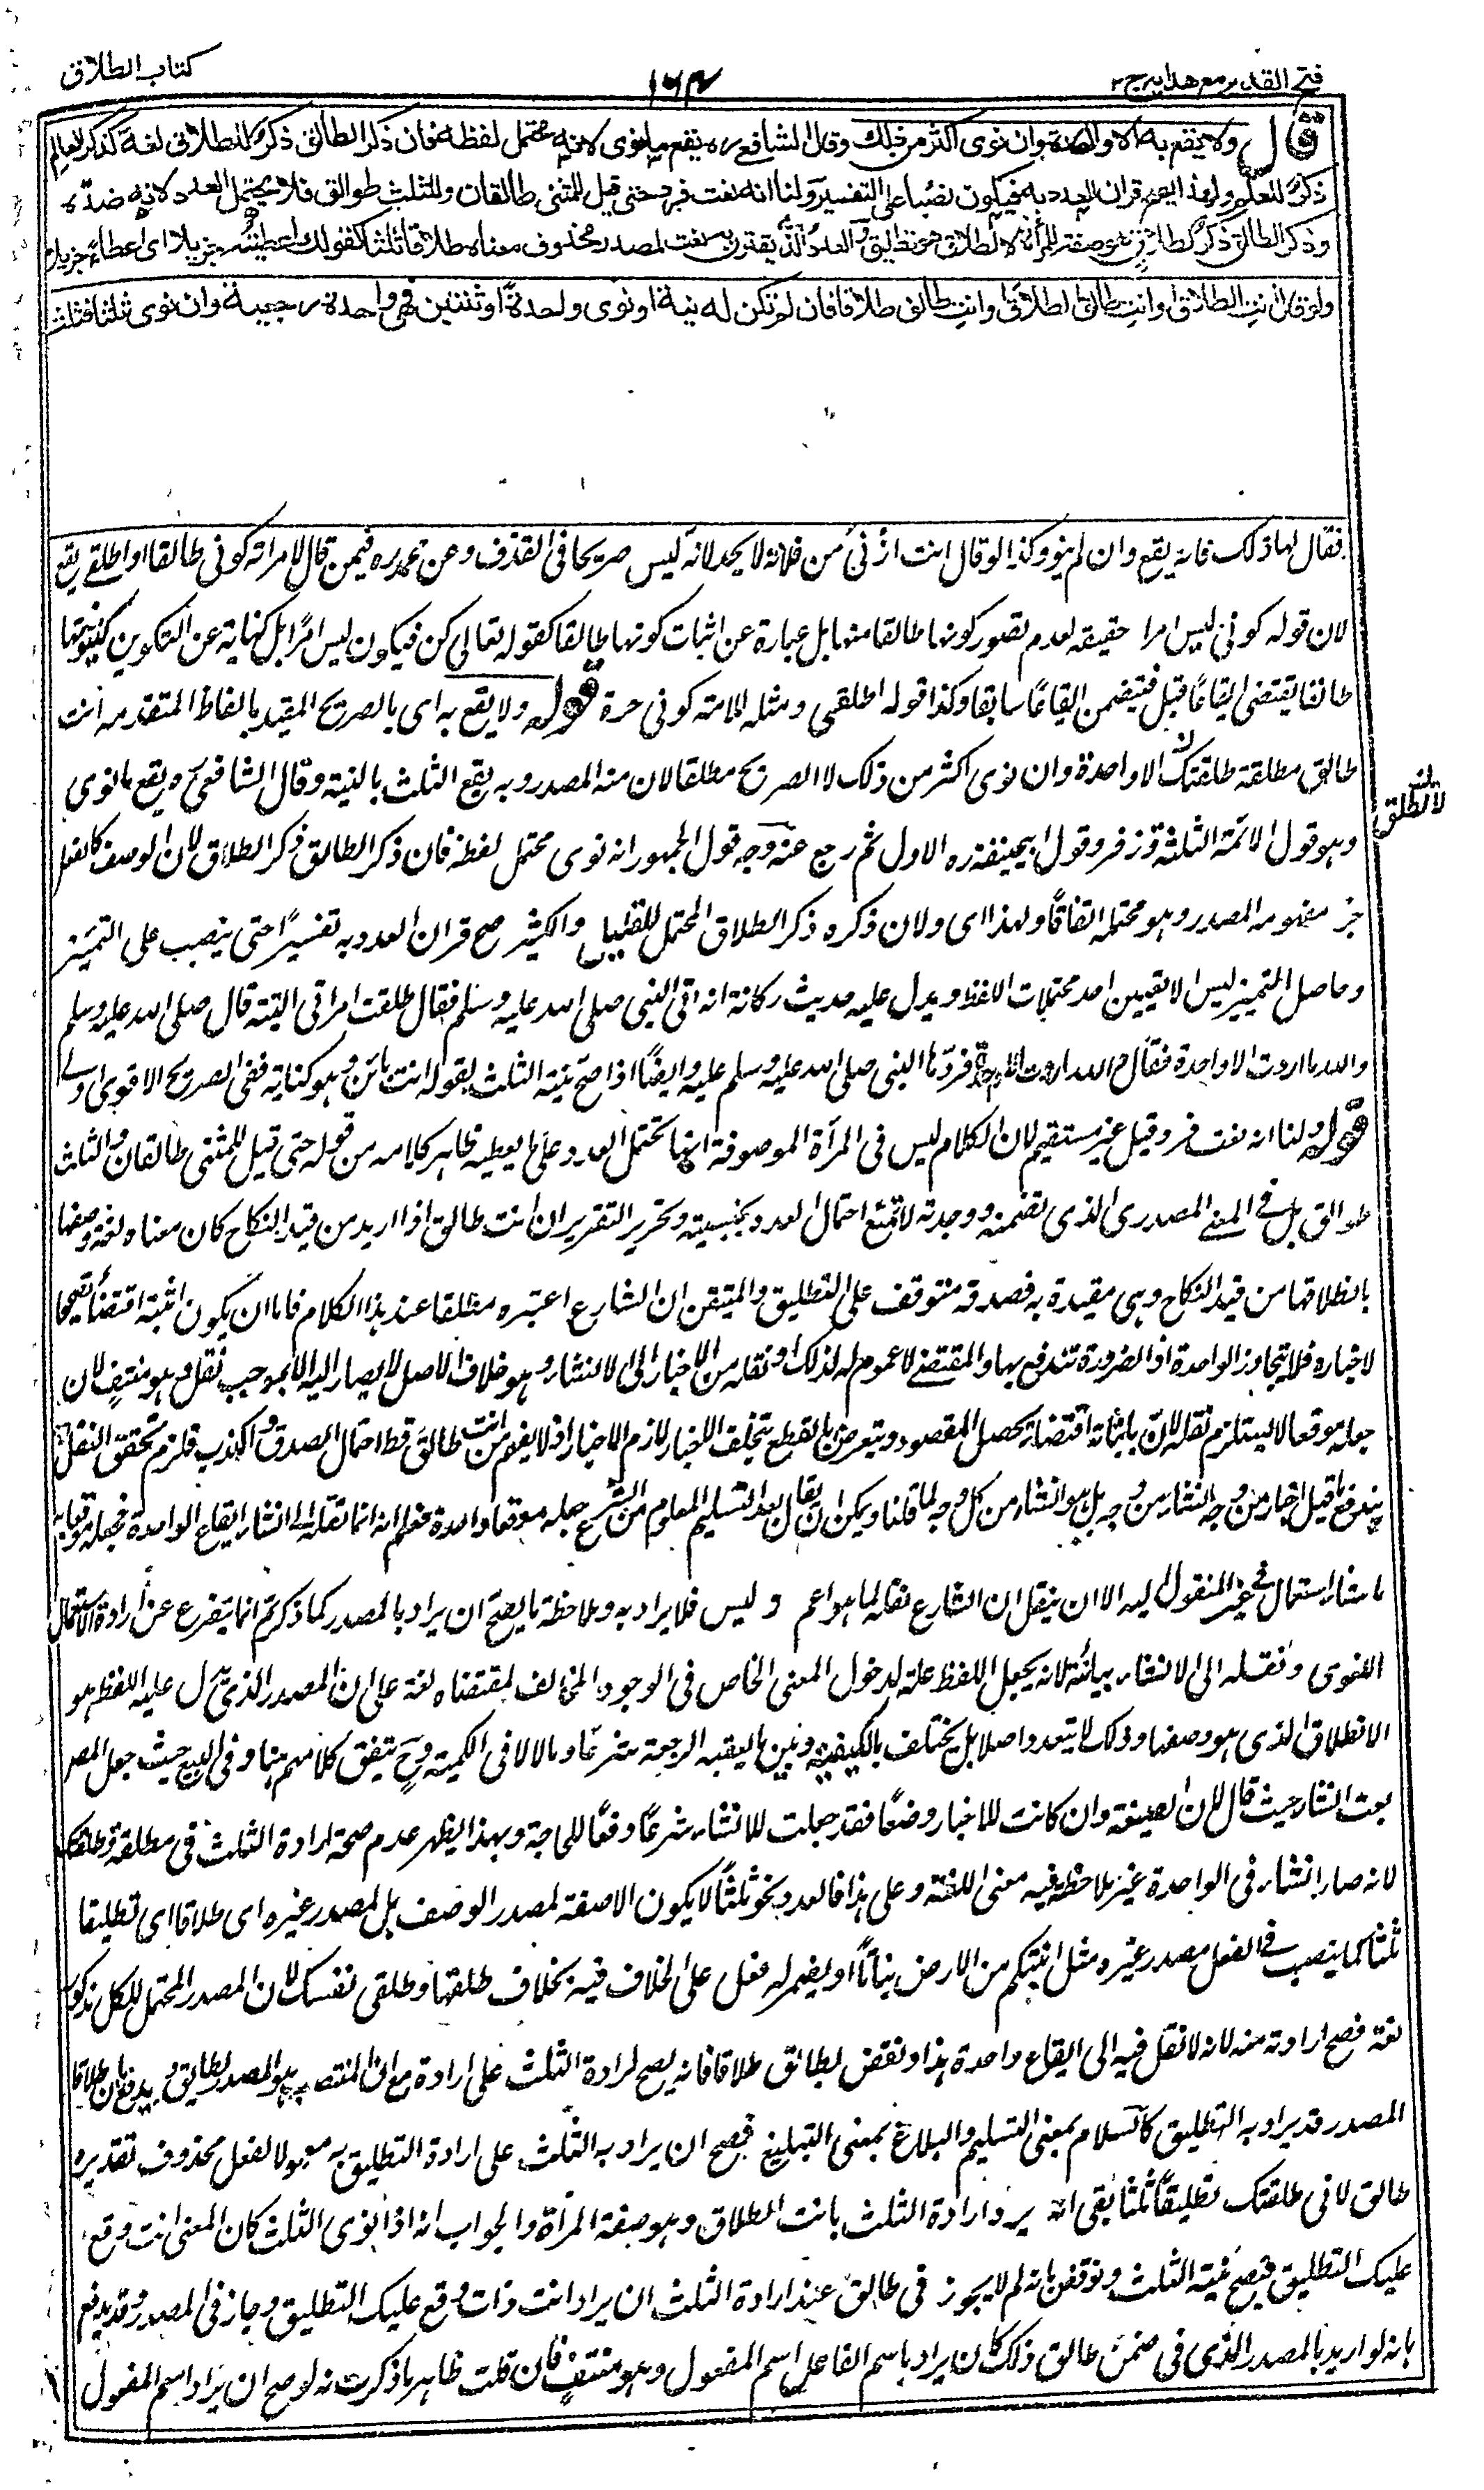 فتح القدیر مع هدایه ج ۲
۱۶۴
کتاب الطلاق
قال ولا یقع به الا واحدة وان نوی اکثر من ذلک وقال الشافعی ره یقع ما نوی لانه محتمل لفظه فان ذکر الطالق ذکر للطلاق لغة کذکر العالم
ذکر للعلم ولهذا یصح قران العدد به فیکون نصبا علی التفسیر ولنا انه نعت فرد حتی قیل للمثنی طالقان وللثلث طوالق فلا یحتمل العدد لانه ضده
وذکر الطالق ذکر لطلاق هو صفة للمرأة لا لطلاق هو تطلیق والعدد الذی یقترن به نعت لمصدر محذوف معناه طلاقا ثلثا کقولک اعطیته جزیلا ای اعطاءً جزیلا
ولو قال انت الطلاق او انت طالق الطلاق او انت طالق طلاقا فان لم تکن له نیة او نوی واحدة او ثنتین فهی واحدة رجعیة وان نوی ثلثا فثلث
فقال لها ذلک فانه یقع وان لم ینو وکذا لو قال انت ازنی من فلانة لا یحد لانه لیس صریحا فی القذف وعن محمد ره فیمن قال لامراته کونی طالقا او اطلقی یقع
لان قوله کونی لیس امرا حقیقة لعدم تصور کونها طالقا منها بل عبارة عن اثبات کونها طالقا کقوله تعالی کن فیکون لیس امرًا بل کنایة عن التکوین کینونتها
طالقا یقتضی ایقاعًا قبل فیتضمن ایقاعًا سابقا وکذا قوله اطلقی ومثله للامة کونی حرة قوله ولا یقع به ای بالصریح المقید بالفاظ المتقدمه انت
طالق مطلقة طلقتک الا واحدة وان نوی اکثر من ذلک لا الصریح مطلقا لان منه المصدر وبه یقع الثلث بالنیة وقال الشافعی ره یقع ما نوی
لان الطلق
وهو قول الائمة الثلثة وزفر وقول ابیحنیفة ره الاول ثم رجع عنه وجه قول الجمهور انه نوی محتمل لفظه فان ذکر الطالق ذکر الطلاق لان الوصف کالفعل
جزء مفهومه المصدر وهو محتمله اتفاقًا ولهذا ای ولان ذکره ذکر الطلاق المحتمل للقلیل والکثیر صح قران العدد به تفسیرًا حتی ینصب علی التمییز
وحاصل التمییز لیس الا تعیین احد محتملات اللفظ ویدل علیه حدیث رکانة انه اتی النبی صلی الله علیه وسلم فقال طلقت امراتی البتة قال صلی الله علیه وسلم
والله ما اردت الا واحدة فقال والله ما اردت الا واحدة فردها النبی صلی الله علیه وسلم علیه وایضًا اذا صح نیة الثلث بقوله انت بائن وهو کنایة ففی الصریح الاقوی اولی
قوله ولنا انه نعت فرد قیل غیر مستقیم لان الکلام لیس فی المرأة الموصوفة انها تحتمل العدد علی ما یعطیه ظاهر کلامه من قوله حتی قیل للمثنی طالقان والثلث
طوالق بل فی المعنی المصدری الذی تضمنه ووحدته لا تمنع احتمال العدد بجنسیته وتحریر التقریر ان انت طالق اذا ارید من قید النکاح کان معناه لغة وصفها
بانطلاقها من قید النکاح وهی مقیدة به فصدقه متوقف علی التطلیق والمتیقن ان الشارع اعتبره مطلقا عند هذا الکلام فاما ان یکون اثبته اقتضاءً تصحیحا
لاخباره فلا یتجاوز الواحدة اذ الضرورة تندفع بها والمقتضی لا عموم له لذلک او نقله من الاخبار الی الانشاء وهو خلاف الاصل لا یصار الیه الا بموجب نقل وهو منتفٍ لان
جعله موقعا لا یستلزم نقله لان باثباته اقتضاءً یحصل المقصود ویتعرض بالقطع بتخلف الاخبار لازم الاخبار اذ لا یفهم من انت طالق قط احتمال الصدق والکذب فلزم تحقق النقل
یندفع ما قیل اخبار من وجه انشاء من وجه بل هو انشاء من کل وجه لما قلنا ویمکن ان یقال بعد التسلیم المعلوم من الشرع جعله موقعا واحدة فعلم انه انما نقله الی انشاء ایقاع الواحدة فجعله موقعا به
ما شاء استعمال فی غیر المنقول الیه الا ان ینقل ان الشارع نقله لما هو اعم ولیس فلا یراد به وملاحظة ما یصح ان یراد بالمصدر کما ذکرتم انما یتفرع عن ارادة الاستعمال
اللغوی ونقله الی الانشاء یباینه لانه یجعل اللفظ علة لدخول المعنی الخاص فی الوجود المخالف لمقتضاه لغة علی ان المصدر الذی یدل علیه اللفظ هو
الانطلاق الذی هو وصفها وذلک لا یتعدد اصلا بل یختلف بالکیفیة وبین ما یعقبه الرجعة شرعًا وما لا لا فی الکمیة وح یتفق کلامهم هنا وفی البیع حیث جعل المصر
بعت انشاء حیث قال لان الصیغة وان کانت للاخبار وضعًا فقد جعلت للانشاء شرعًا دفعًا للحاجة وبهذا یظهر عدم صحة ارادة الثلث فی مطلقة وطلقتک
لانه صار انشاء فی الواحدة غیر ملاحظ فیه معنی اللغة وعلی هذا فالعدد نحو ثلثًا لا یکون الا صفة لمصدر الوصف بل لمصدر غیره ای طلاقا ای تطلیقا
ثلثا کما ینصب فی الفعل مصدر غیره مثل انبتکم من الارض نباتًا او یضمر له فعل علی الخلاف فیه بخلاف طلقها وطلقی نفسک لان المصدر المحتمل للکل مذکور
لغة فصح ارادته منه لانه لا نقل فیه الی ایقاع واحدة هذا ونقض بطالق طلاقا فانه یصح ارادة الثلث علی ارادة مع ان المنتصب هو المصدر لطالق ویدفع بان طلاقا
المصدر قد یراد به التطلیق کالسلام بمعنی التسلیم والبلاغ بمعنی التبلیغ فیصح ان یراد به الثلث علی ارادة التطلیق به معمولا لفعل محذوف تقدیره
طالق لانی طلقتک تطلیقًا ثلثا بقی انه یرد ارادة الثلث بانت الطلاق وهو صفة المرأة والجواب انه اذا نوی الثلث کان المعنی انت وقع
علیک التطلیق فیصح نیة الثلث ونوقض بانه لم لا یجوز فی طالق عند ارادة الثلث ان یراد انت ذات وقع علیک التطلیق وجاز فی المصدر وقد یدفع
بانه لو ارید بالمصدر الذی فی ضمن طالق ذلک کان یراد باسم الفاعل اسم المفعول وهو منتفٍ فان قلت ظاهر ما ذکرت انه لو صح ان یراد اسم المفعول